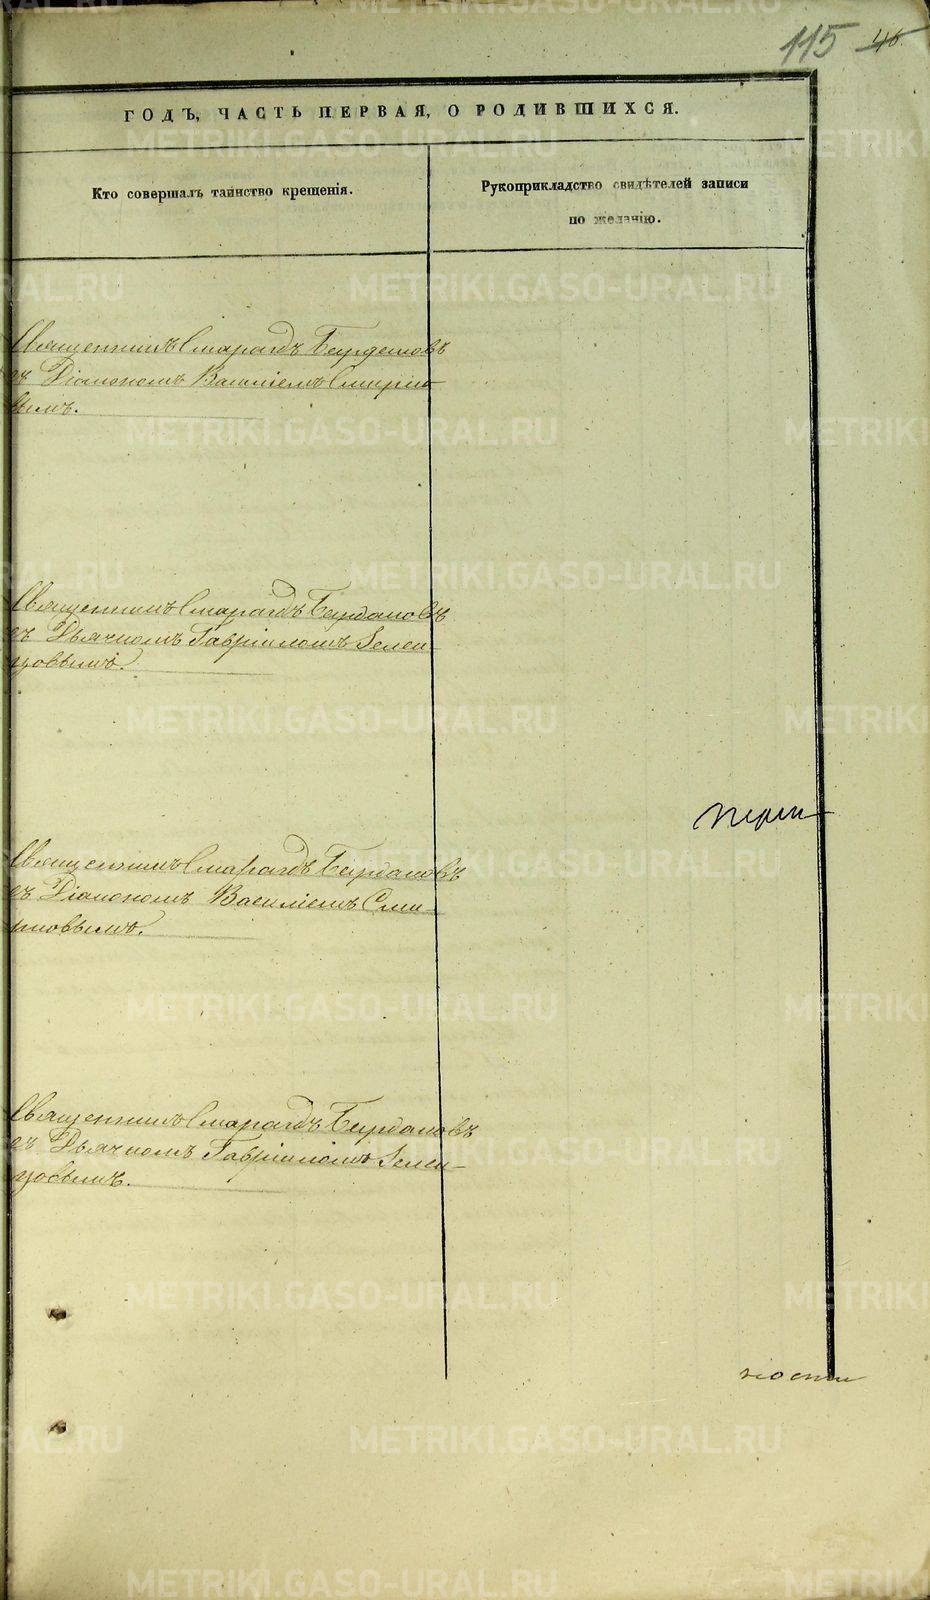 115 46.
ГОДЪ, ЧАСТЬ ПЕРВАЯ, О РОДИВШИХСЯ.
Кто совершалъ таинство крещенія.
Рукоприкладство свидѣтелей записи
по желанію.
Священникъ Смарагдъ Бирюковъ
съ Діакономъ Василіемъ Смирно-
вымъ.
Священникъ Смарагдъ
съ Дьячкомъ Гавріиломъ Зелен-
цовымъ.
Священникъ Смарагдъ
съ Діакономъ Василіемъ Сми-
рновымъ.
Священникъ Смарагдъ
съ Дьячкомъ Гавріиломъ Зелен-
цовымъ.
ности
METRIKI.GASO-URAL.RU